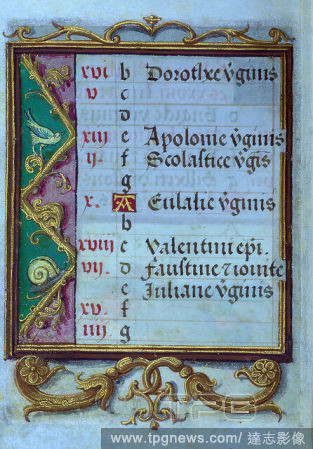 xvi b Dorothee v̄ginis
v c
d
xiii e Apolonie v̄ginis
ii. f Scolastice v̄gis
g
x. A Eulalie v̄ginis
b
xviii c Valentini ep̄i.
vii. d Faustine ⁊ iovite
e Juliane v̄ginis
xv. f
iiii g
TPG
www.tpgnews.com/ 達志影像